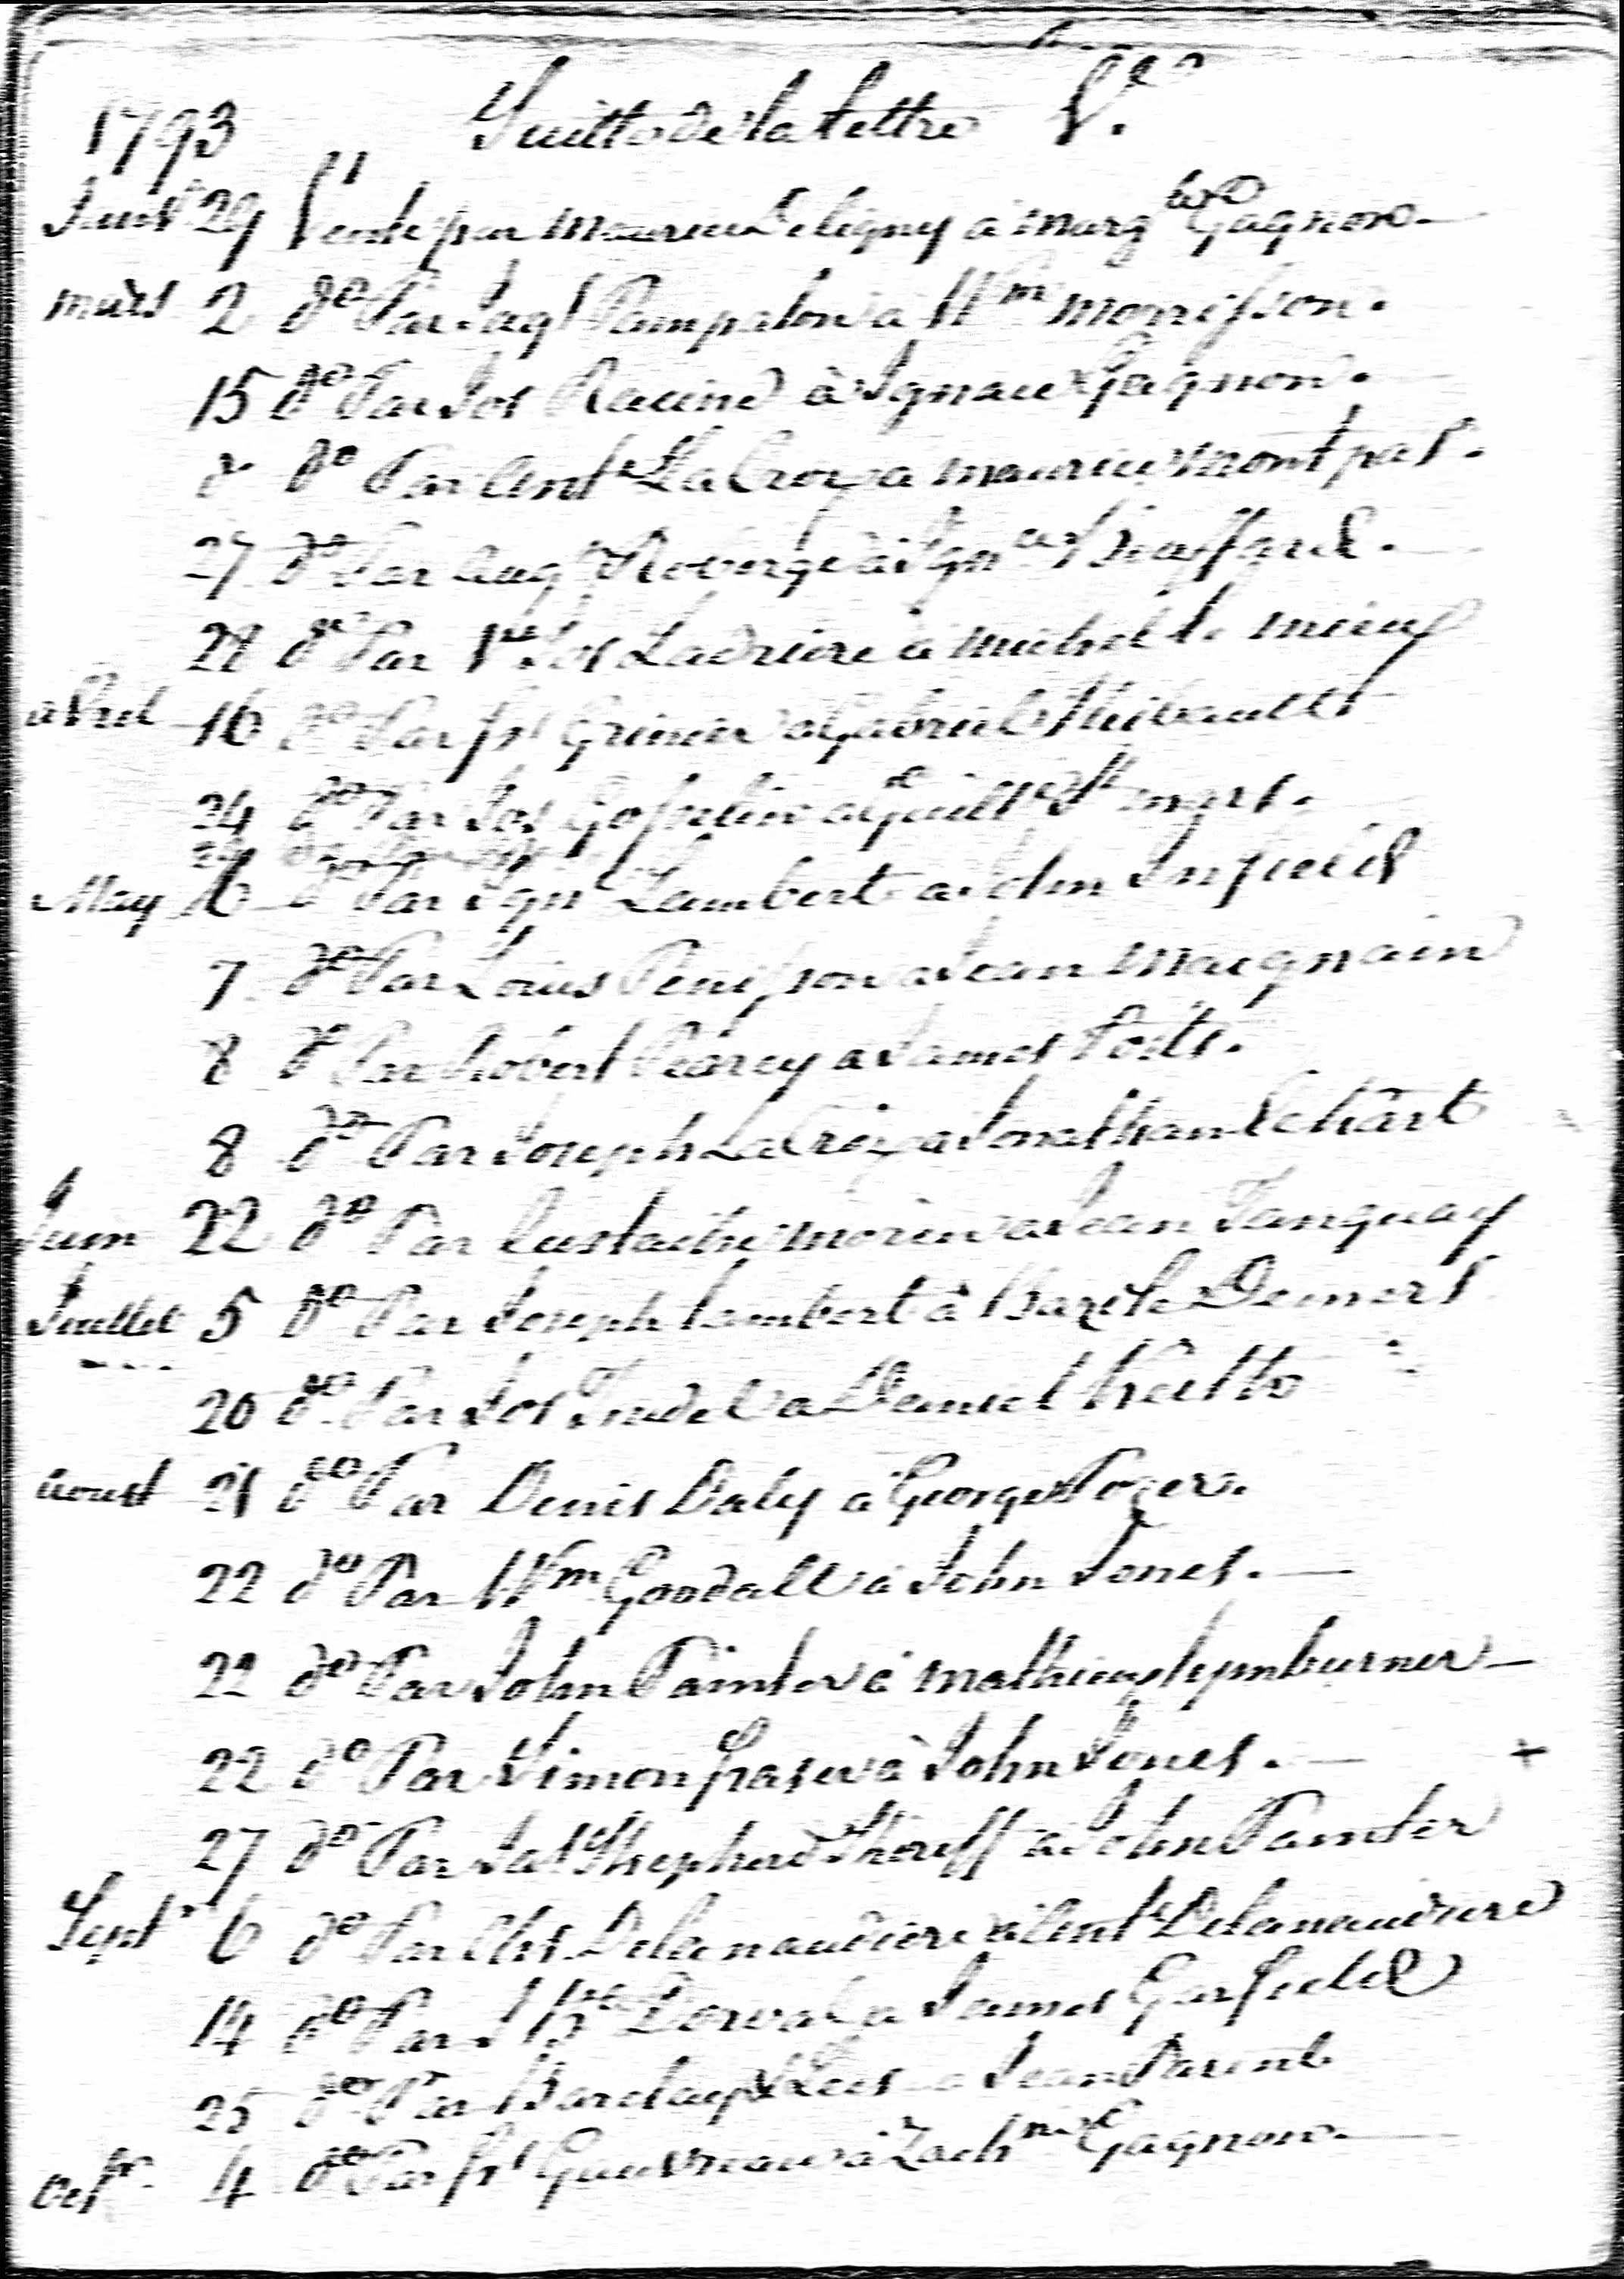 1793 Suitte de la Lettre V.
Janvr 29 Vente par maurice Deligny à Margte Gagnon
mars 2 do Par Jaqs Pampalon à Wm morrisson.
15 do Par Jos Racine à Ignace Gagnon.
do Par Ante LaCroix a maurice montpas.
27 do Par Augn Roberge à Ignce Braffard.
28 do Par Jos Ladriere à michel Le mieux
avril 16 do Par frs Grenier a Gabriel Thibeault
24 do Par Jos Gosselin a Guille St mars.
May 6 do Par Igne Lambert a John Infield
7 do Par Louis Penisson a Jean Maignain
8 do Par Robert Pearcy a James Potts.
8 do Par Joseph LaCroix a Jonathan Eckart
Juin 22 do Par Eustache morin a Jean Tanguay
Juillet 5 do Par Joseph Lambert à Bazile Demers
20 do Par Jos Trudel a Daniel
aoust 21 do Par Denis Daly à George Pozer.
22 do Par Wm Goodall à John Jones.
22 do Par John Painter à mathieu Lymburner
22 do Par Simon fraser à John Jones. +
27 do Par Jas Shepherd Shériff à John Painter
Septr 6 do Par Chs Delanaudiere à Ante Delanaudiere
14 do Par J Bte Dorval a James Garfield
25 do Par Barclay & Lees a Jean Parent
octr 4 do Par frs Gauvreau à Zachrie Gagnon.